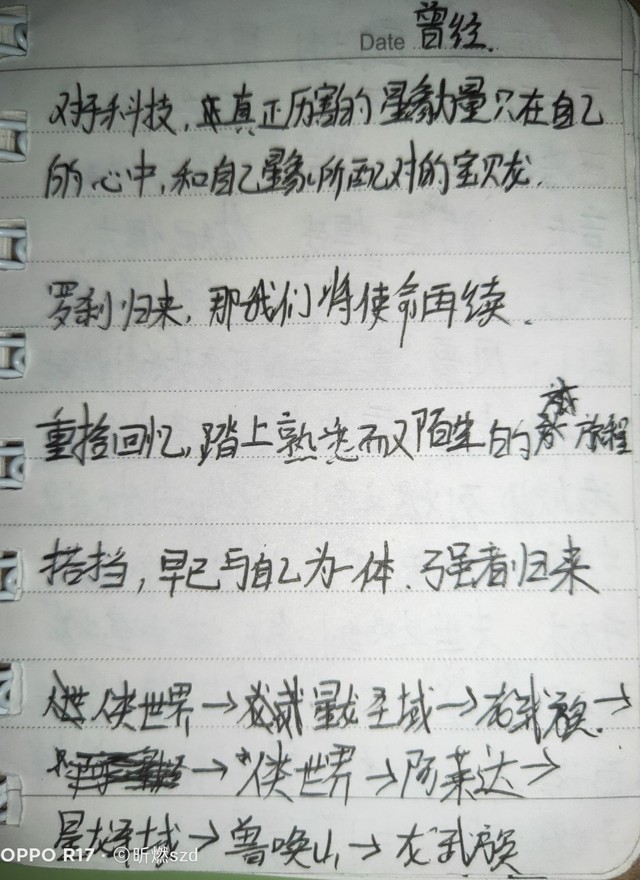 Date 曾经.
对于科技,真正厉害的星象力量只在自己
的心中,和自己星象所匹对的宝贝龙.
罗刹归来,那我们将使命再续.
重拾回忆,踏上熟悉而又陌生的旅程
搭挡,早已与自己为一体.强者归来
侠世界→龙武星龙圣域→龙武族.→
→侠世界→阿莱达→
星龙圣域→兽唤山→龙武族
OPPO R17 · ©昕燃szd